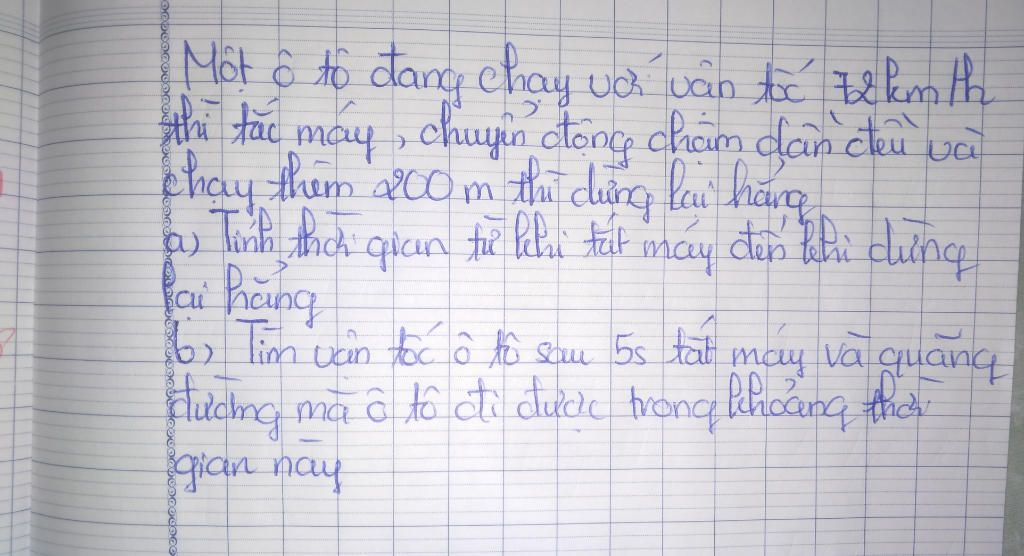 Một ô tô đang chạy với vận tốc 72km/h
thì tắc máy, chuyển động chậm dần đều và
chạy thêm 200m thì dừng lại hẳng
a) Tính thời gian từ khi tắt máy đến khi dừng
lại hẳng
b) Tìm vận tốc ô tô sau 5s tắt máy và quãng
đường mà ô tô đi được trong khoảng thời
gian này